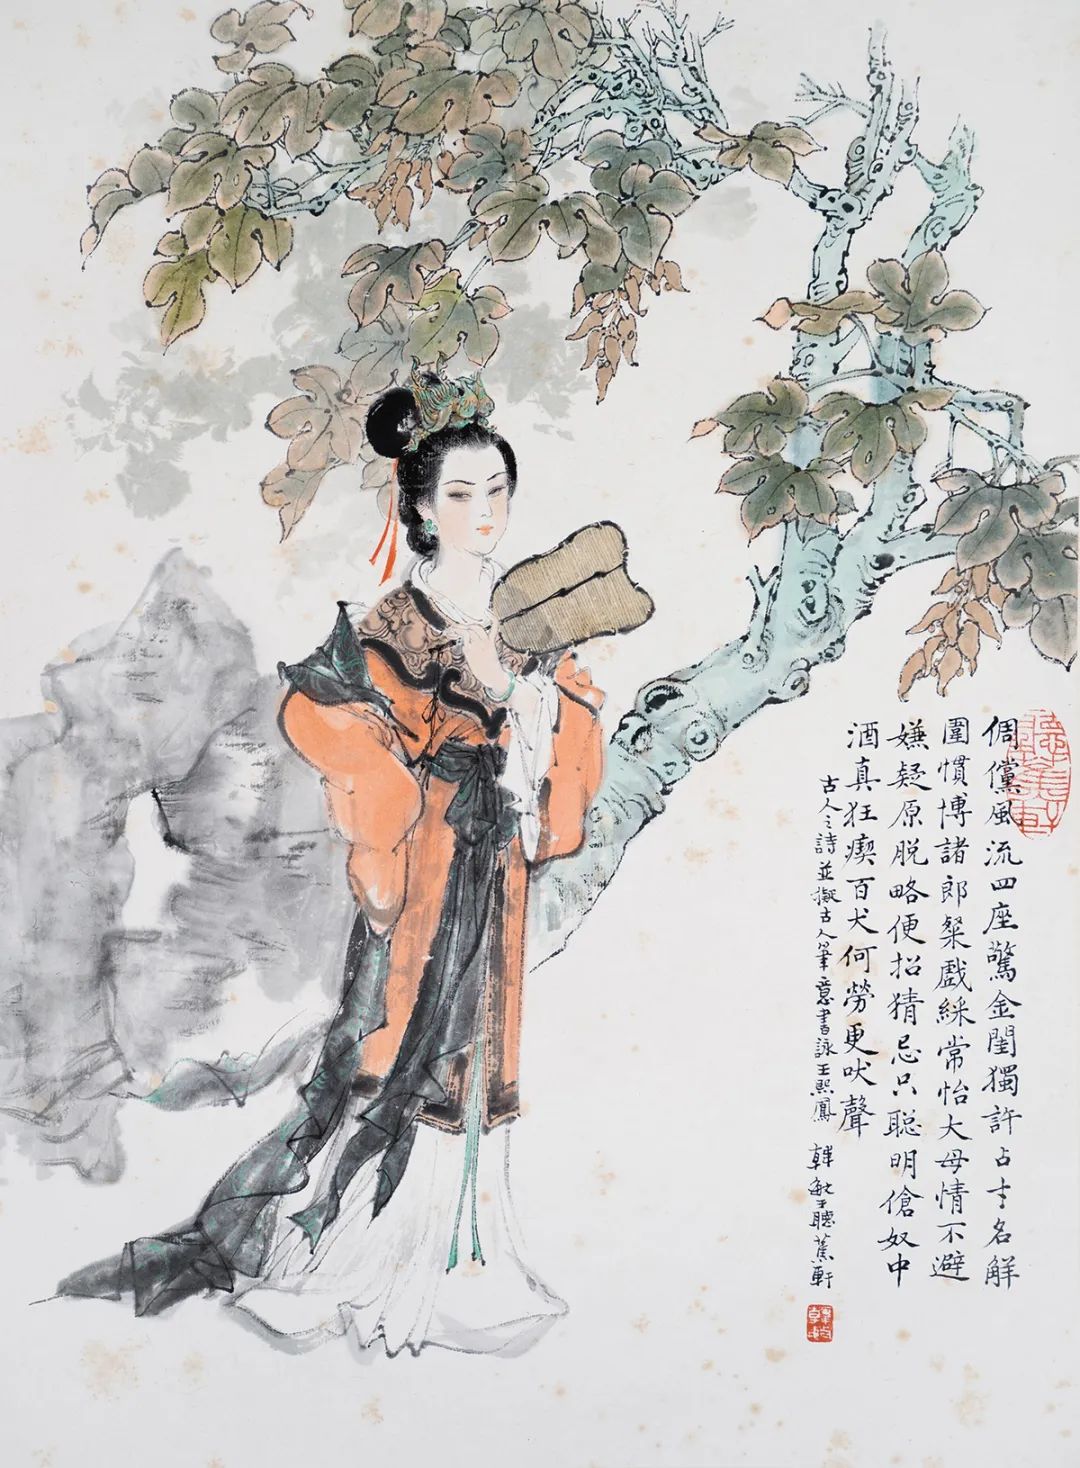 聽蕉軒
倜儻風流四座驚金閨獨許占才名解
圍慣博諸郎粲戲綵常怡大母情不避
嫌疑原脱略便招猜忌只聰明傖奴中
酒真狂瘈百犬何勞更吠聲
古人之詩並擬古人筆意書詠王熙鳳 韓敏于聽蕉軒